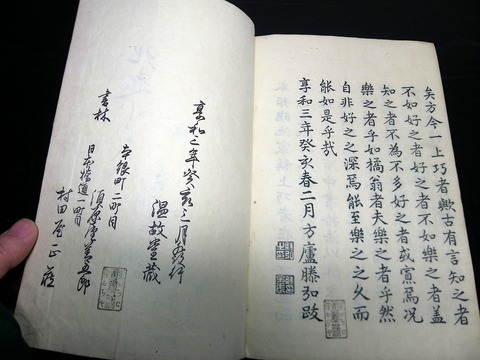 矣方今一上巧者歟古有言知之者
不如好之者好之者不如樂之者蓋
知之者不為不多好之者或寡焉况
樂之者乎如橘翁者夫樂之者乎然
自非好之之深焉能至樂之之久而
能如是乎哉
享和三年癸亥春二月方廬滕弘跋
享和三年癸亥三月
温故堂藏
本銀町二町目
須原屋善五郎
書林
日本橋通一町目
村田屋